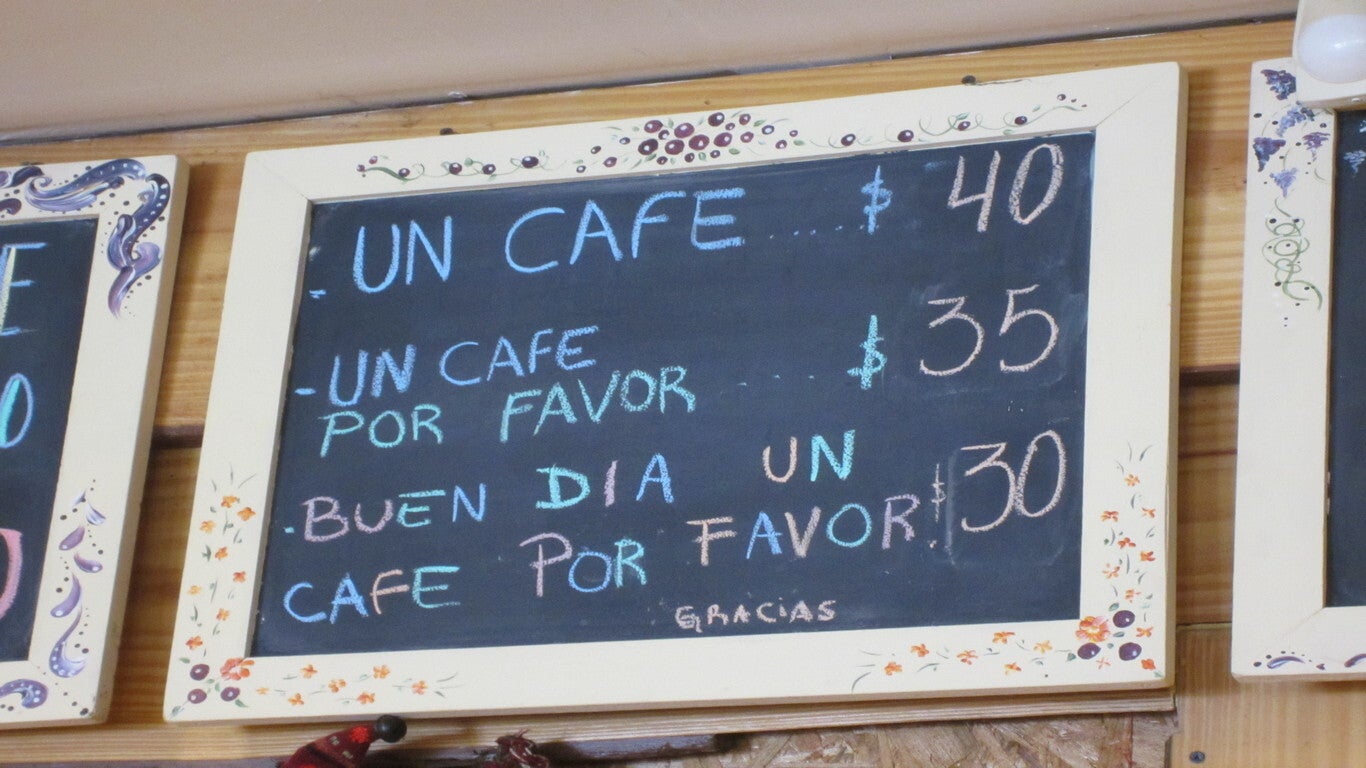 - UN CAFE ..... $ 40
- UN CAFE
POR FAVOR .... $ 35
- BUEN DIA UN
CAFE POR FAVOR. $ 30
GRACIAS